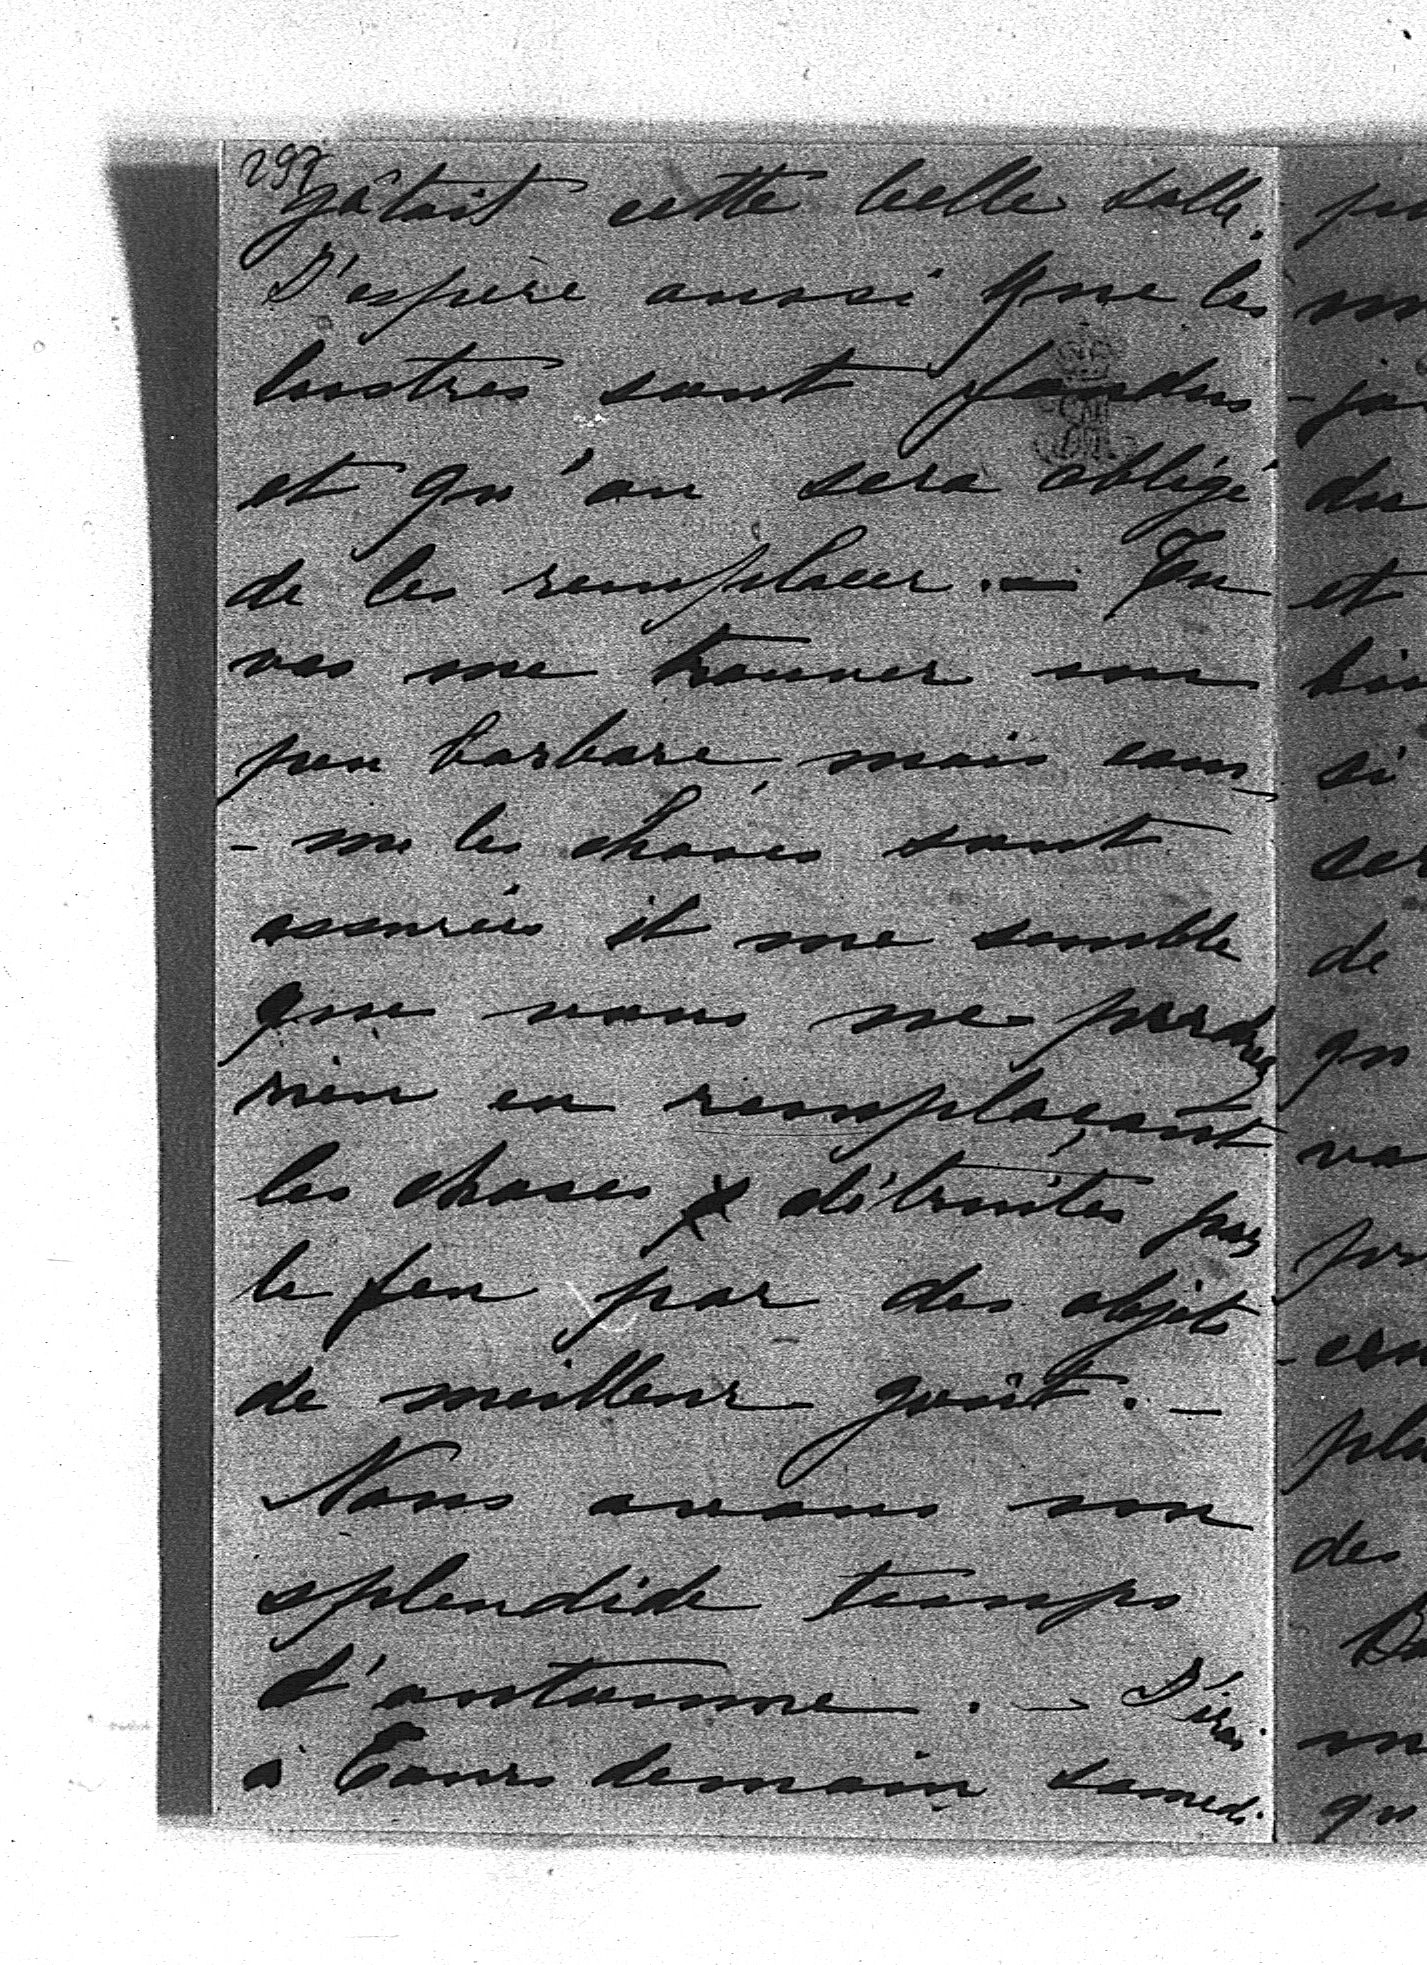 297
gâtait cette belle salle.
J'espère aussi que les
lustres sont fondus
et qu'on sera obligé
de les remplacer. — Tu
vas me trouver un
peu barbare, mais com-
- me les choses sont
assurées il me semble
que vous ne perdrez
rien en remplaçant
les choses détruites par
le feu par des objets
de meilleur goût. —
Nous avons un
splendide temps
d'automne. — J'irai
à Tours demain samedi